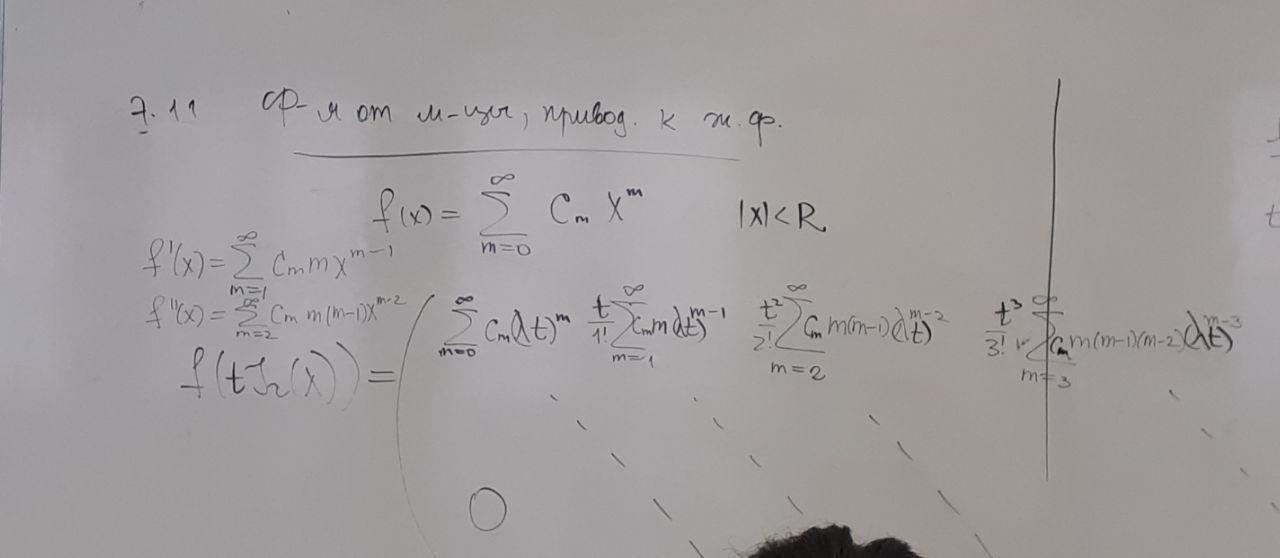 7.11 ф-я от м-цы, привод. к ж.ф.
f(x) = ∑_{m=0}^{∞} C_m x^m |x|<R
f'(x) = ∑_{m=1}^{∞} C_m m x^{m-1}
f''(x) = ∑_{m=2}^{∞} C_m m(m-1)x^{m-2}
f(tJ_r(λ)) = ( ∑_{m=0}^{∞} C_m(λt)^m t/1! ∑_{m=1}^{∞} C_m m(λt)^{m-1} t²/2! ∑_{m=2}^{∞} C_m m(m-1)(λt)^{m-2} t³/3! ∑_{m=3}^{∞} C_m m(m-1)(m-2)(λt)^{m-3}
0